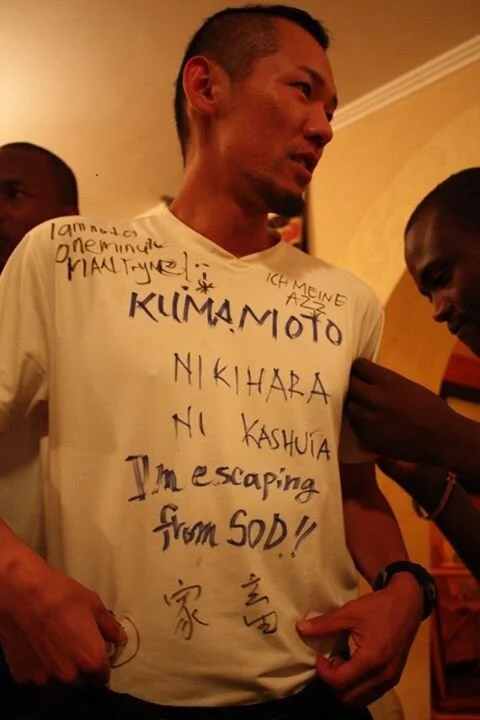 I am not a
oneminute
MAN Try Me!
ICH MEINE
AZZ
KUMAMOTO
NIKIHARA
NI KASHUTA
I'm escaping
from SOD!!
家畜